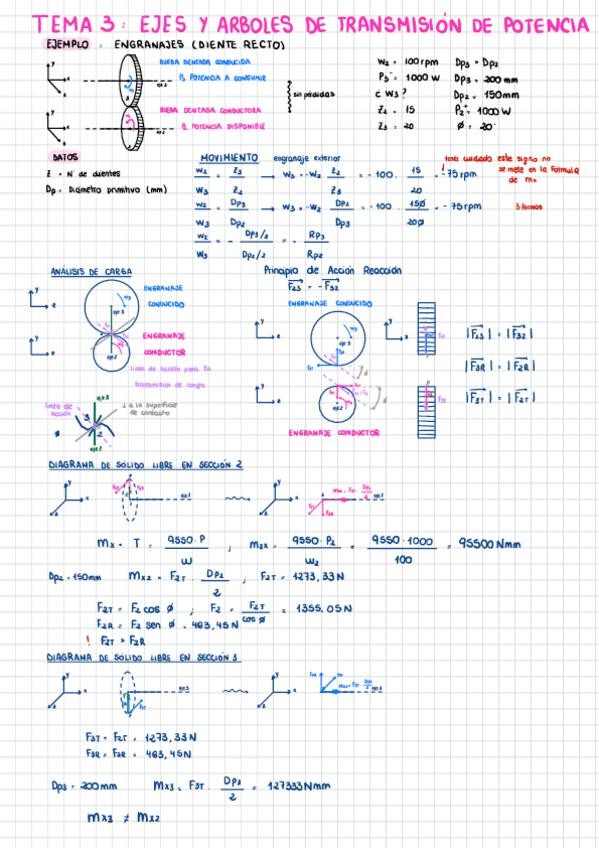 TEMA 3: EJES Y ARBOLES DE TRANSMISIÓN DE POTENCIA
EJEMPLO: ENGRANAJES (DIENTE RECTO)
RUEDA DENTADA CONDUCIDA
P3 POTENCIA A CONSUMIR
RUEDA DENTADA CONDUCTORA
P2 POTENCIA DISPONIBLE
sin pérdidas
W2 = 100 rpm Dp3 > Dp2
P3 = 1000 W Dp3 = 200 mm
¿ W3 ? Dp2 = 150 mm
Z2 = 15 P2 = 1000 W
Z3 = 20 ø = 20°
DATOS
Z = Nº de dientes
Dp = Diámetro primitivo (mm)
MOVIMIENTO engranaje exterior
W2/W3 = - Z3/Z2 → W3 = -W2 Z2/Z3 = -100 · 15/20 = -75 rpm
tener cuidado este signo no se mete en la fórmula de mx
W2/W3 = - Dp3/Dp2 → W3 = -W2 Dp2/Dp3 = -100 · 150/200 = -75 rpm
3 formas
W2/W3 = - Dp3/2 / Dp2/2 = - Rp3/Rp2
ANÁLISIS DE CARGA
Principio de Acción Reacción
F23 = -F32
ENGRANAJE CONDUCIDO
ENGRANAJE CONDUCTOR
línea de acción para la transmisión de carga
línea de acción
⊥ a la superficie de contacto
ENGRANAJE CONDUCIDO
ENGRANAJE CONDUCTOR
|F23| = |F32|
|F3R| = |F2R|
|F3T| = |F2T|
DIAGRAMA DE SÓLIDO LIBRE EN SECCIÓN 2
mx = T = 9550·P/W ; m2x = 9550·P2/W2 = 9550·1000/100 = 95500 Nmm
Dp2 = 150mm mx2 = F2T · Dp2/2 ; F2T = 1273,33 N
F2T = F2 cos ø ; F2 = F2T/cos ø = 1355,05 N
F2R = F2 sen ø = 463,45 N
! F2T > F2R
DIAGRAMA DE SÓLIDO LIBRE EN SECCIÓN 3
F3T = F2T = 1273,33 N
F3R = F2R = 463,45 N
Dp3 = 200mm Mx3 = F3T · Dp3/2 = 127333 Nmm
mx3 ≠ mx2